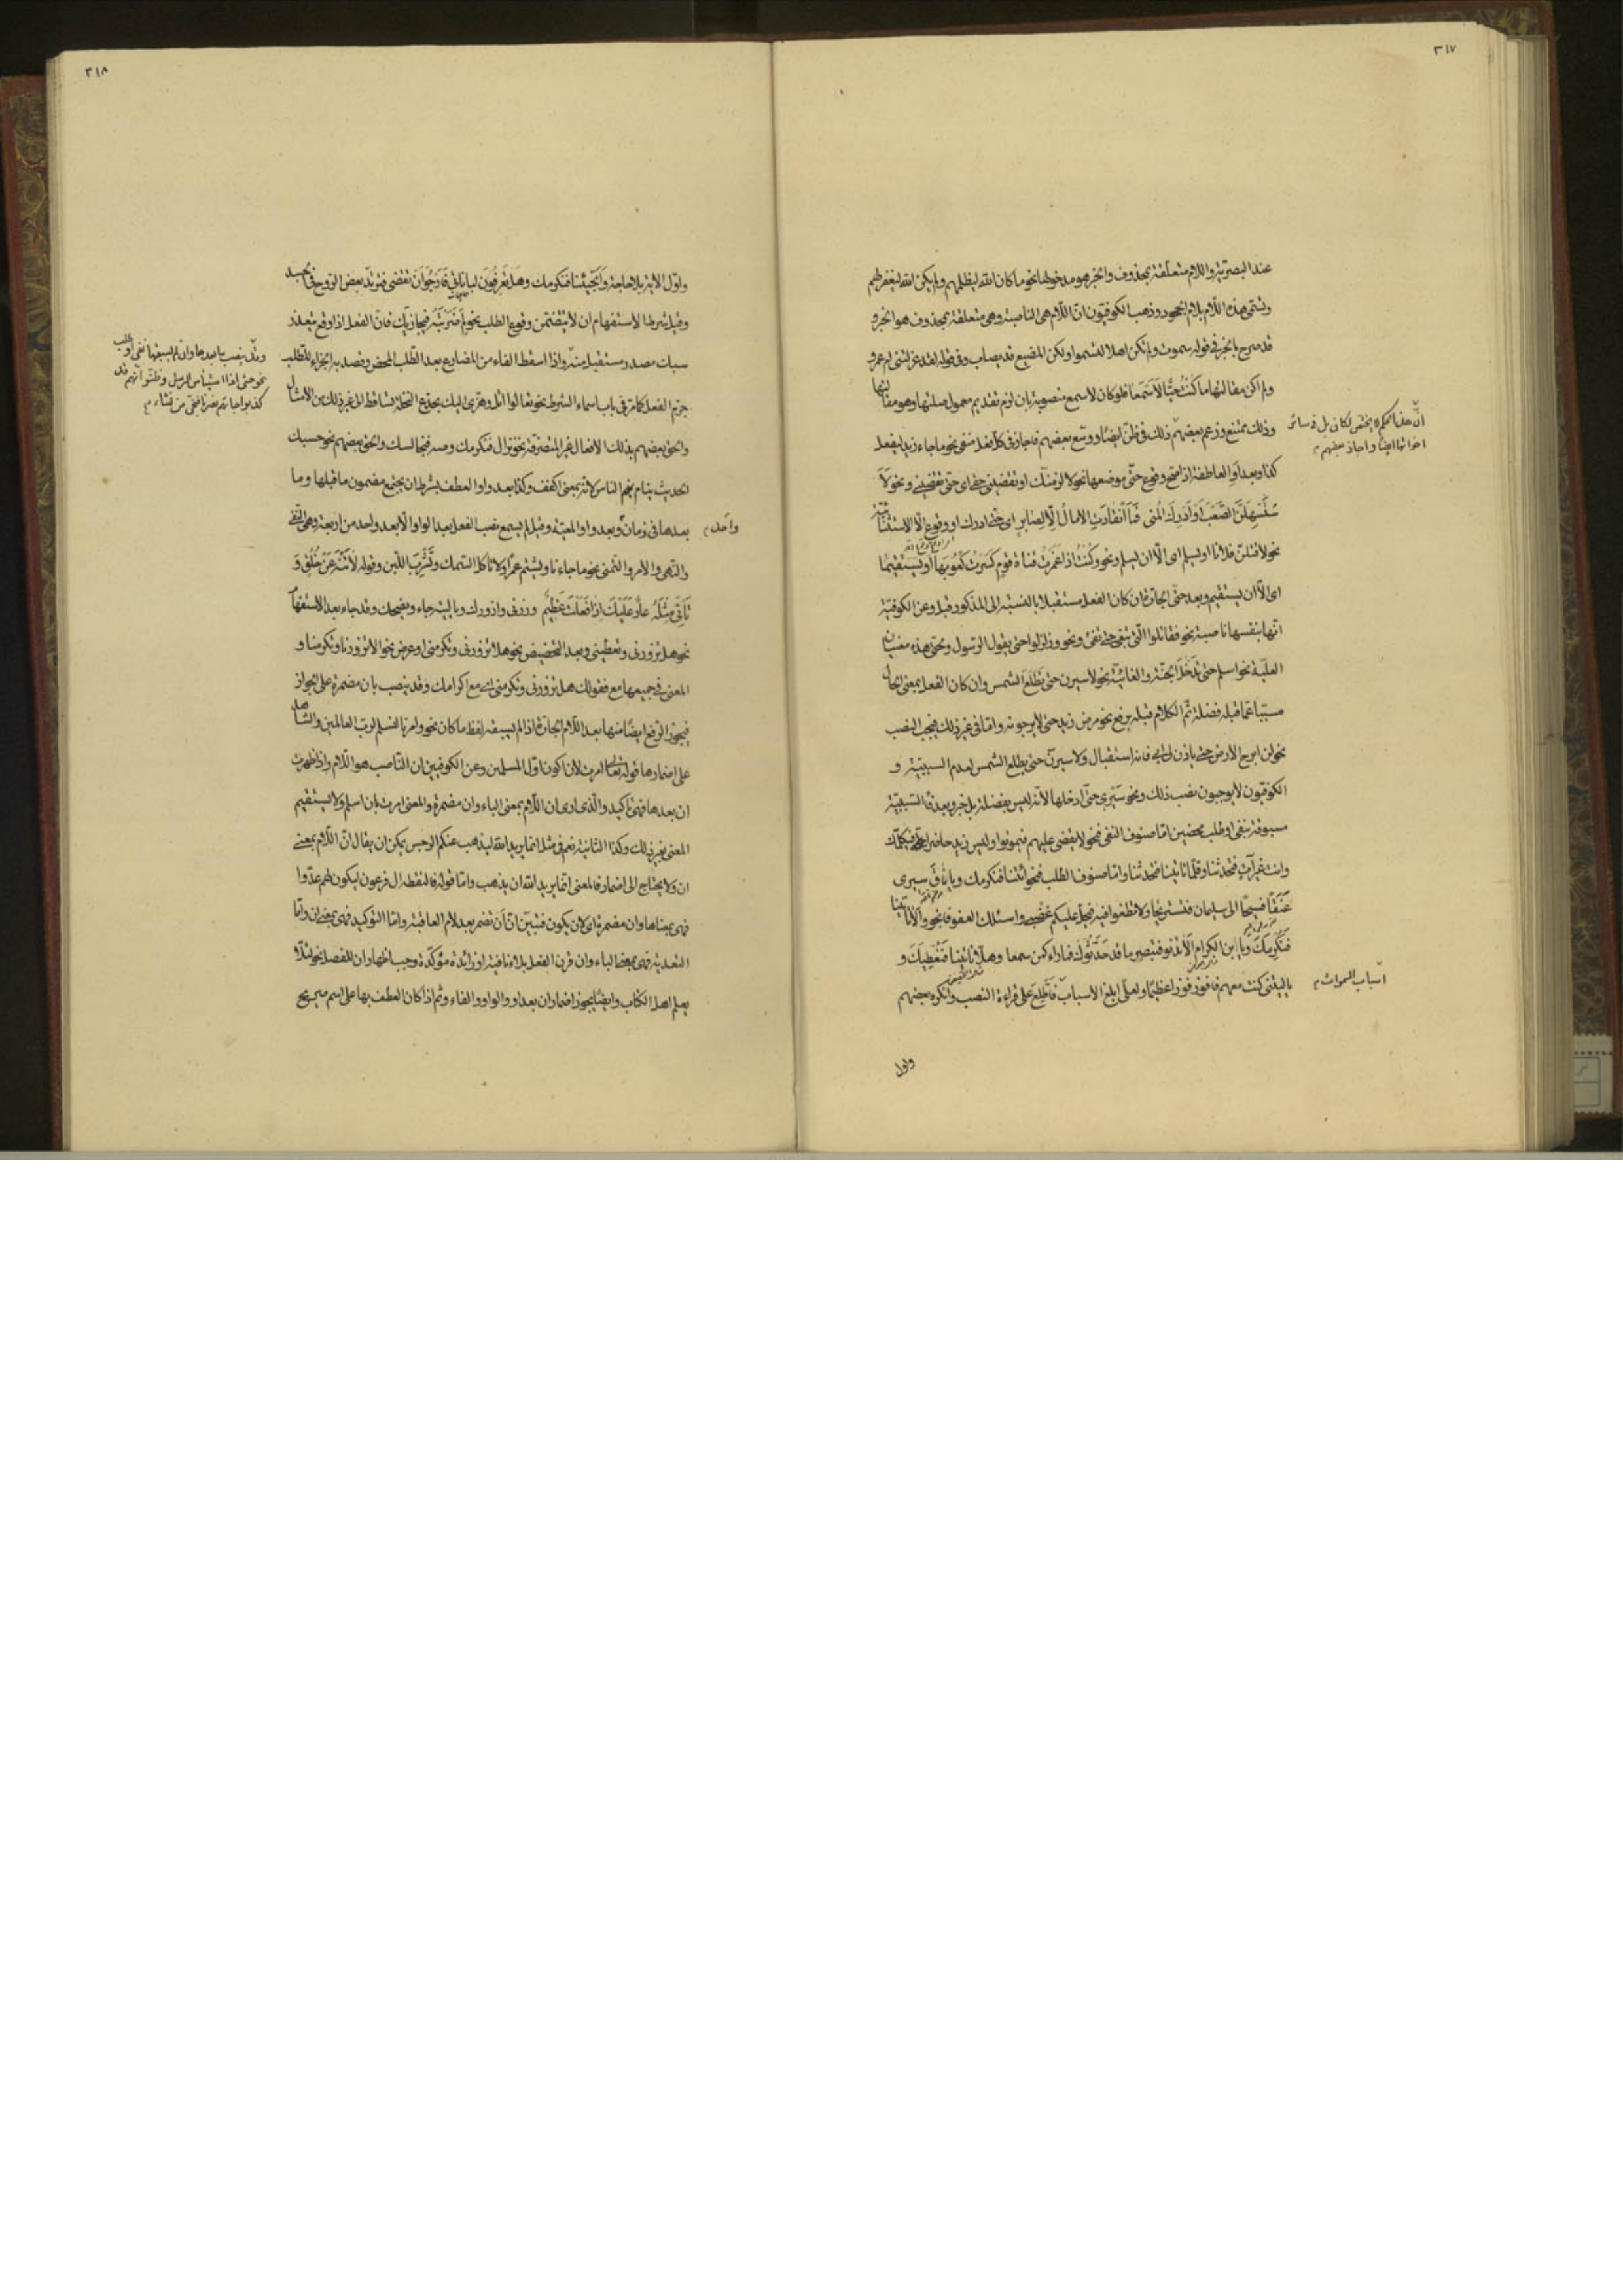 ٣١٧
عند البصريّة واللام متعلّقة بمحذوف والخبر هو مدخولها نحو ما كان الله ليظلمهم ولم يكن الله ليغفر لهم
وتسمّى هذه اللّام بلام الجحود وذهب الكوفيّون انّ اللّام هى الناصبة وهى متعلقة بمحذوف هو الخبر و
قد صرح بالخبر فى قوله سموت ولم تكن اهلا لتسموا ولكن المضيع قد يصاب وفى قوله لقد عزلتنى ام عمرو
ولم اكن مقالتها ما كُنْتُ حيًّا لاَسْمَعَا فلو كان لاسمع منصوبة بان لزم تقديم معمول صلتها وهو مقالتها
وذلك ممتنع وزعم بعضهم ذلك فى ظنّ ايضًا ووسّع بعضهم فاجاز فى كلّ فعل منفى نحو ما جاء زيد ليفعل
انّ هذا الحكم لا يختص لكان بل فى سائر
اخواتها ايضًا واجاز بعضهم م
كذا وبعد او العاطفة اذا صلح وقوع حتّى موضعها نحو لالزمنّك او تقضينى حقى اى حتّى تقضينى ونحو لاَ
سْتَسْهِلَنَّ الصَّعْبَ اَوْ اُدْرِكَ الْمُنى فَمَا انْقَادَتِ الامالُ اِلّا لِصَابِرٍ اى حتّى ادرك او وقوع الّا الاستثنائيّة
نحو لاقتلنّ فلانا او يسلم اى الّا ان يسلم ونحو وكُنْتُ اِذا غَمَزْتُ قناةَ قومٍ كَسَرْتُ كُعُوبَها اَو تَسْتَقيْمَا
اى الّا ان تستقيم وبعد حتّى الجارّة ان كان الفعل مستقبلا بالنسبة الى المذكور قبل وعن الكوفيّة
انّها بنفسها ناصبة نحو فقاتلوا الّتى تبغى حتّى تفئ ونحو وزلزلوا حتى يقول الرسول ولحتى هذه معنيان
العليّة نحو اسلم حتى تَدْخُلَ الجنّة والغائيّة نحو لاسيرن حتى تَطْلُعَ الشمس وان كان الفعل بمعنى الحال
مسببا عمّا قبله فضلة تمّ الكلام قبله يرفع نحو مرض زيد حتى لا يرجونه وامّا فى غير ذلك فيجب النصب
نحو لن ابرح الارض حتى ياذن لى ابى فانه استقبال ولاسيرنّ حتّى يطلع الشمس لعدم السببيّة و
الكوفيّون لا يوجبون نصب ذلك ونحو سَيْرى حتّى ادخلها لانّه ليس بفضلة بل خبر وبعد فاء السّببيّة
مسبوقة بنفى او طلب محضين امّا صنوف النفى فنحو لا يقضى عليهم فيموتوا وليس زيد حاضرا فيكلّمك
وانت غير آتٍ فتحدثنا وقلّما تاتينا فتحدثنا وامّا صنوف الطلب فنحو ائتنا فنكرمك ويا ناقَ سيرى
عَنَقًا فسيحًا الى سليمان فنستريحا ولا تطغوا فيه فيحلّ عليكم غضبى واسئلك العفو فانجو والا تاتينا
فَنُكْرِمَكَ ويا ابن الكرام اَلا تدنو فتبصر ما قد حَدَّثوك فما راءٍ كمن سمعا وهلّا تاتينا فَنُعْطِيَكَ و
ياليتنى كنت معهم فافوز فوزا عظيمًا ولعلّى ابلغ الاسباب فَاَطّلِعَ على قراءة النصب وانكره بعضهم
اسباب السموات م
واوّل
٣١٨
واوّل الاية بلا حاجة واَتُجيئنا فنكرمك وهَل تَعْرِفُونَ لباناتى فَاَرْجُوَ اَنْ تقضى فيرتدّ بعض الروح فى الجسد
وقيل شرط الاستفهام ان لا يتضمن وقوع الطلب نحو لِمَ ضَرَبْتَهُ فيجازيك فانّ الفعل اذا وقع يتعذر
سبك مصدر مستقبل منه واذا اسقط الفاء من المضارع بعد الطّلب المحض وقصد به الجزاء للطّلب
وقد ينصب ما بعدها وان لم يسبقها نفى او طلب
نحو حتى اذا استيأس الرسل وظنّوا انّهم قد
كذبوا جاءهم نصرنا فنجّى من نشاء م
جزم الفعل كما مرّ فى باب اسماء الشرط نحو تعالوا اتل وهزى اليك بجذع النخلة تساقط الى غير ذلك من الامثال
والحق بعضهم بذلك الافعال غير المتصرّفة نحو نزال فنكرمك وصه فنجالسك والحق بعضهم نحو حسبك
الحديث ينام بهم الناس لانّه بمعنى اكفف وكذا بعد واو العطف بشرط ان يجتمع مضمون ما قبلها وما
بعدها فى زمان وبعد واو المعيّة وقيل لم يسمع نصب الفعل بعد الواو الّا بعد واحد من اربعة وهى النّفى
واحد م
والنّهى والامر والتمنى نحو ما جاءنا ويشتم عمرًا ولا تاكل السّمك وتَشْرَبَ اللّبن وقوله لاَتَنْهَ عَنْ خُلُقٍ وَ
تَأْتِىَ مِثْلَهُ عارٌ عَلَيْكَ اِذا فَعَلْتَ عَظيْمٌ وزرنى وازورك وياليته جاء ويضحك وقد جاء بعد الاستفهام
نحو هل تزورنى وتعطينى وبعد التحضيض نحو هلا تزورنى وتكرمنى او عرض نحو الا تزورنا وتكرمنا و
المعنى فى جميعها مع فقولك هل تزورنى وتكرمنى اى مع اكرامك وقد ينصب بان مضمرة على الجواز
فيجوز الرّفع ايضًا منها بعد اللّام الجارّة اذا لم يسبقه لفظ ما كان نحو وامرنا لنسلم لربّ العالمين والشاهد
على اضمارها قوله تعالى امرت لان اكون اوّل المسلمين وعن الكوفيّين ان النّاصب هو اللّام واذا ظهرت
ان بعدها فهى تاكيد والّذى ارى ان اللّام بمعنى الباء وان مضمرة والمعنى امرت بان اسلم ولا يستقيم
المعنى بغير ذلك وكذا الثانية نعم فى مثل انما يريد الله ليذهب عنكم الرجس يمكن ان يقال انّ اللّام بمعنى
ان ولا يحتاج الى اضمار فالمعنى انّما يريد الله ان يذهب وامّا قوله فالتقطه ال فرعون ليكون لهم عدّوا
فهى بمعناها وان مضمرة اى لان يكون فتبيّن ان أن تضمر بعد لام العاقبة وامّا التوكيد فهى بمعنى ان وامّا
التعدية فهى بمعنى الباء وان قرن الفعل بلا نافية او زائدة مؤكّدة وجب اظهار ان للفصل نحو لئلّا
يعلم اهل الكتاب وايضًا يجوز اضمار ان بعد او والواو والفاء وثمّ اذا كان العطف بها على اسم صريح